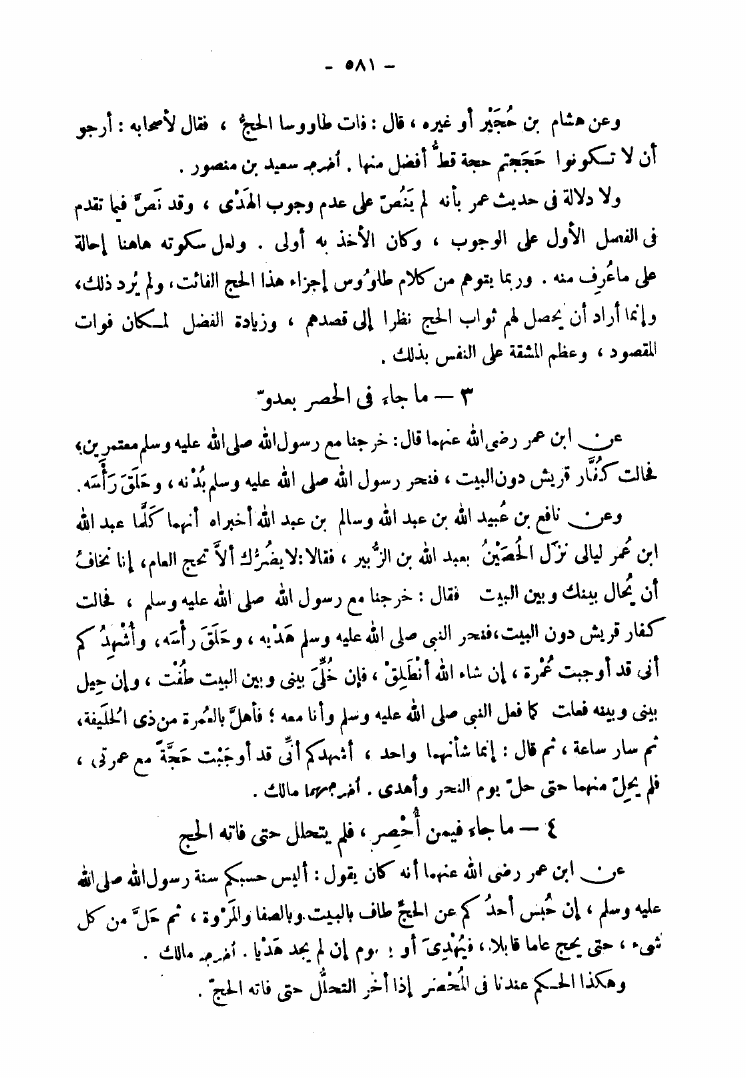 - ٥٨١ -
وعن هشام بن حُجَيْر أو غيره ، قال : فات طاووسا الحجُّ ، فقال لأصحابه : أرجو
أن لا تكونوا حَجَجتم حجة قطُّ أفضل منها . أخرجه سعيد بن منصور .
ولا دلالة فى حديث عمر بأنه لم يَنُصّ على عدم وجوب الهَدْى ، وقد نَصَّ فيما تقدم
فى الفصل الأول على الوجوب ، وكان الأخذ به أولى . ولعل سكوته هاهنا إحالة
على ماعُرِف منه . وربما يتوهم من كلام طاوُوس إجزاء هذا الحج الفائت، ولم يُرد ذلك،
وإنما أراد أن يحصل لهم ثواب الحج نظرا إلى قصدهم ، وزيادة الفضل لمكان فوات
المقصود ، وعظم المشقة على النفس بذلك .
٣ — ما جاء فى الحصر بعدوّ
عن ابن عمر رضى الله عنهما قال: خرجنا مع رسول الله صلى الله عليه وسلم معتمرين؛
فحالت كُفَّار قريش دون البيت ، فنحر رسول الله صلى الله عليه وسلم بُدْنه ، وحَلَقَ رَأْسَه .
وعن نافع بن عُبيد الله بن عبد الله وسالم بن عبد الله أخبراه أنهما كَلَّما عبد الله
ابن عُمر ليالى نَزَل الحُصَيْنُ بعبد الله بن الزُّبير ، فقالا: لا يضُرُّك ألاَّ تحج العام، إنا نخافُ
أن يُحال بينك وبين البيت فقال : خرجنا مع رسول الله صلى الله عليه وسلم ، فحالت
كفار قريش دون البيت، فنحر النبى صلى الله عليه وسلم هَدْيه ، وحَلَقَ رأْسَه، وأُشْهِدُ كم
أنى قد أوجبت عُمْرة ، إن شاء الله أنْطَلِقْ ، فإن خُلِّىَ بينى وبين البيت طُفْت ، وإن حِيل
بينى وبينه فعلت كما فعل النبى صلى الله عليه وسلم وأنا معه ؛ فأهلَّ بالعُمرة من ذى الحُلَيفة،
ثم سار ساعة ، ثم قال : إنما شأنهما واحد ، أشهدكم أنِّى قد أوجَبْت حَجَّةً مع عمرتى ،
فلم يحِلّ منهما حتى حلّ يوم النحر وأهدى . أخرجهما مالك .
٤ — ما جاء فيمن أُحْصِر ، فلم يتحلل حتى فاته الحج
عن ابن عمر رضى الله عنهما أنه كان يقول : أليس حسبكم سنة رسول الله صلى الله
عليه وسلم ، إن حُبِس أحدُ كم عن الحجِّ طاف بالبيت وبالصفا والمَرْوة ، ثم حَلَّ من كل
شىء ، حتى يحج عاما قابلا ، فيُهْدِىَ أو يصوم إن لم يجد هَدْيا . أخرجه مالك .
وهكذا الحكم عندنا فى المُحْصَر إذا أخّر التحلُّل حتى فاته الحجّ .